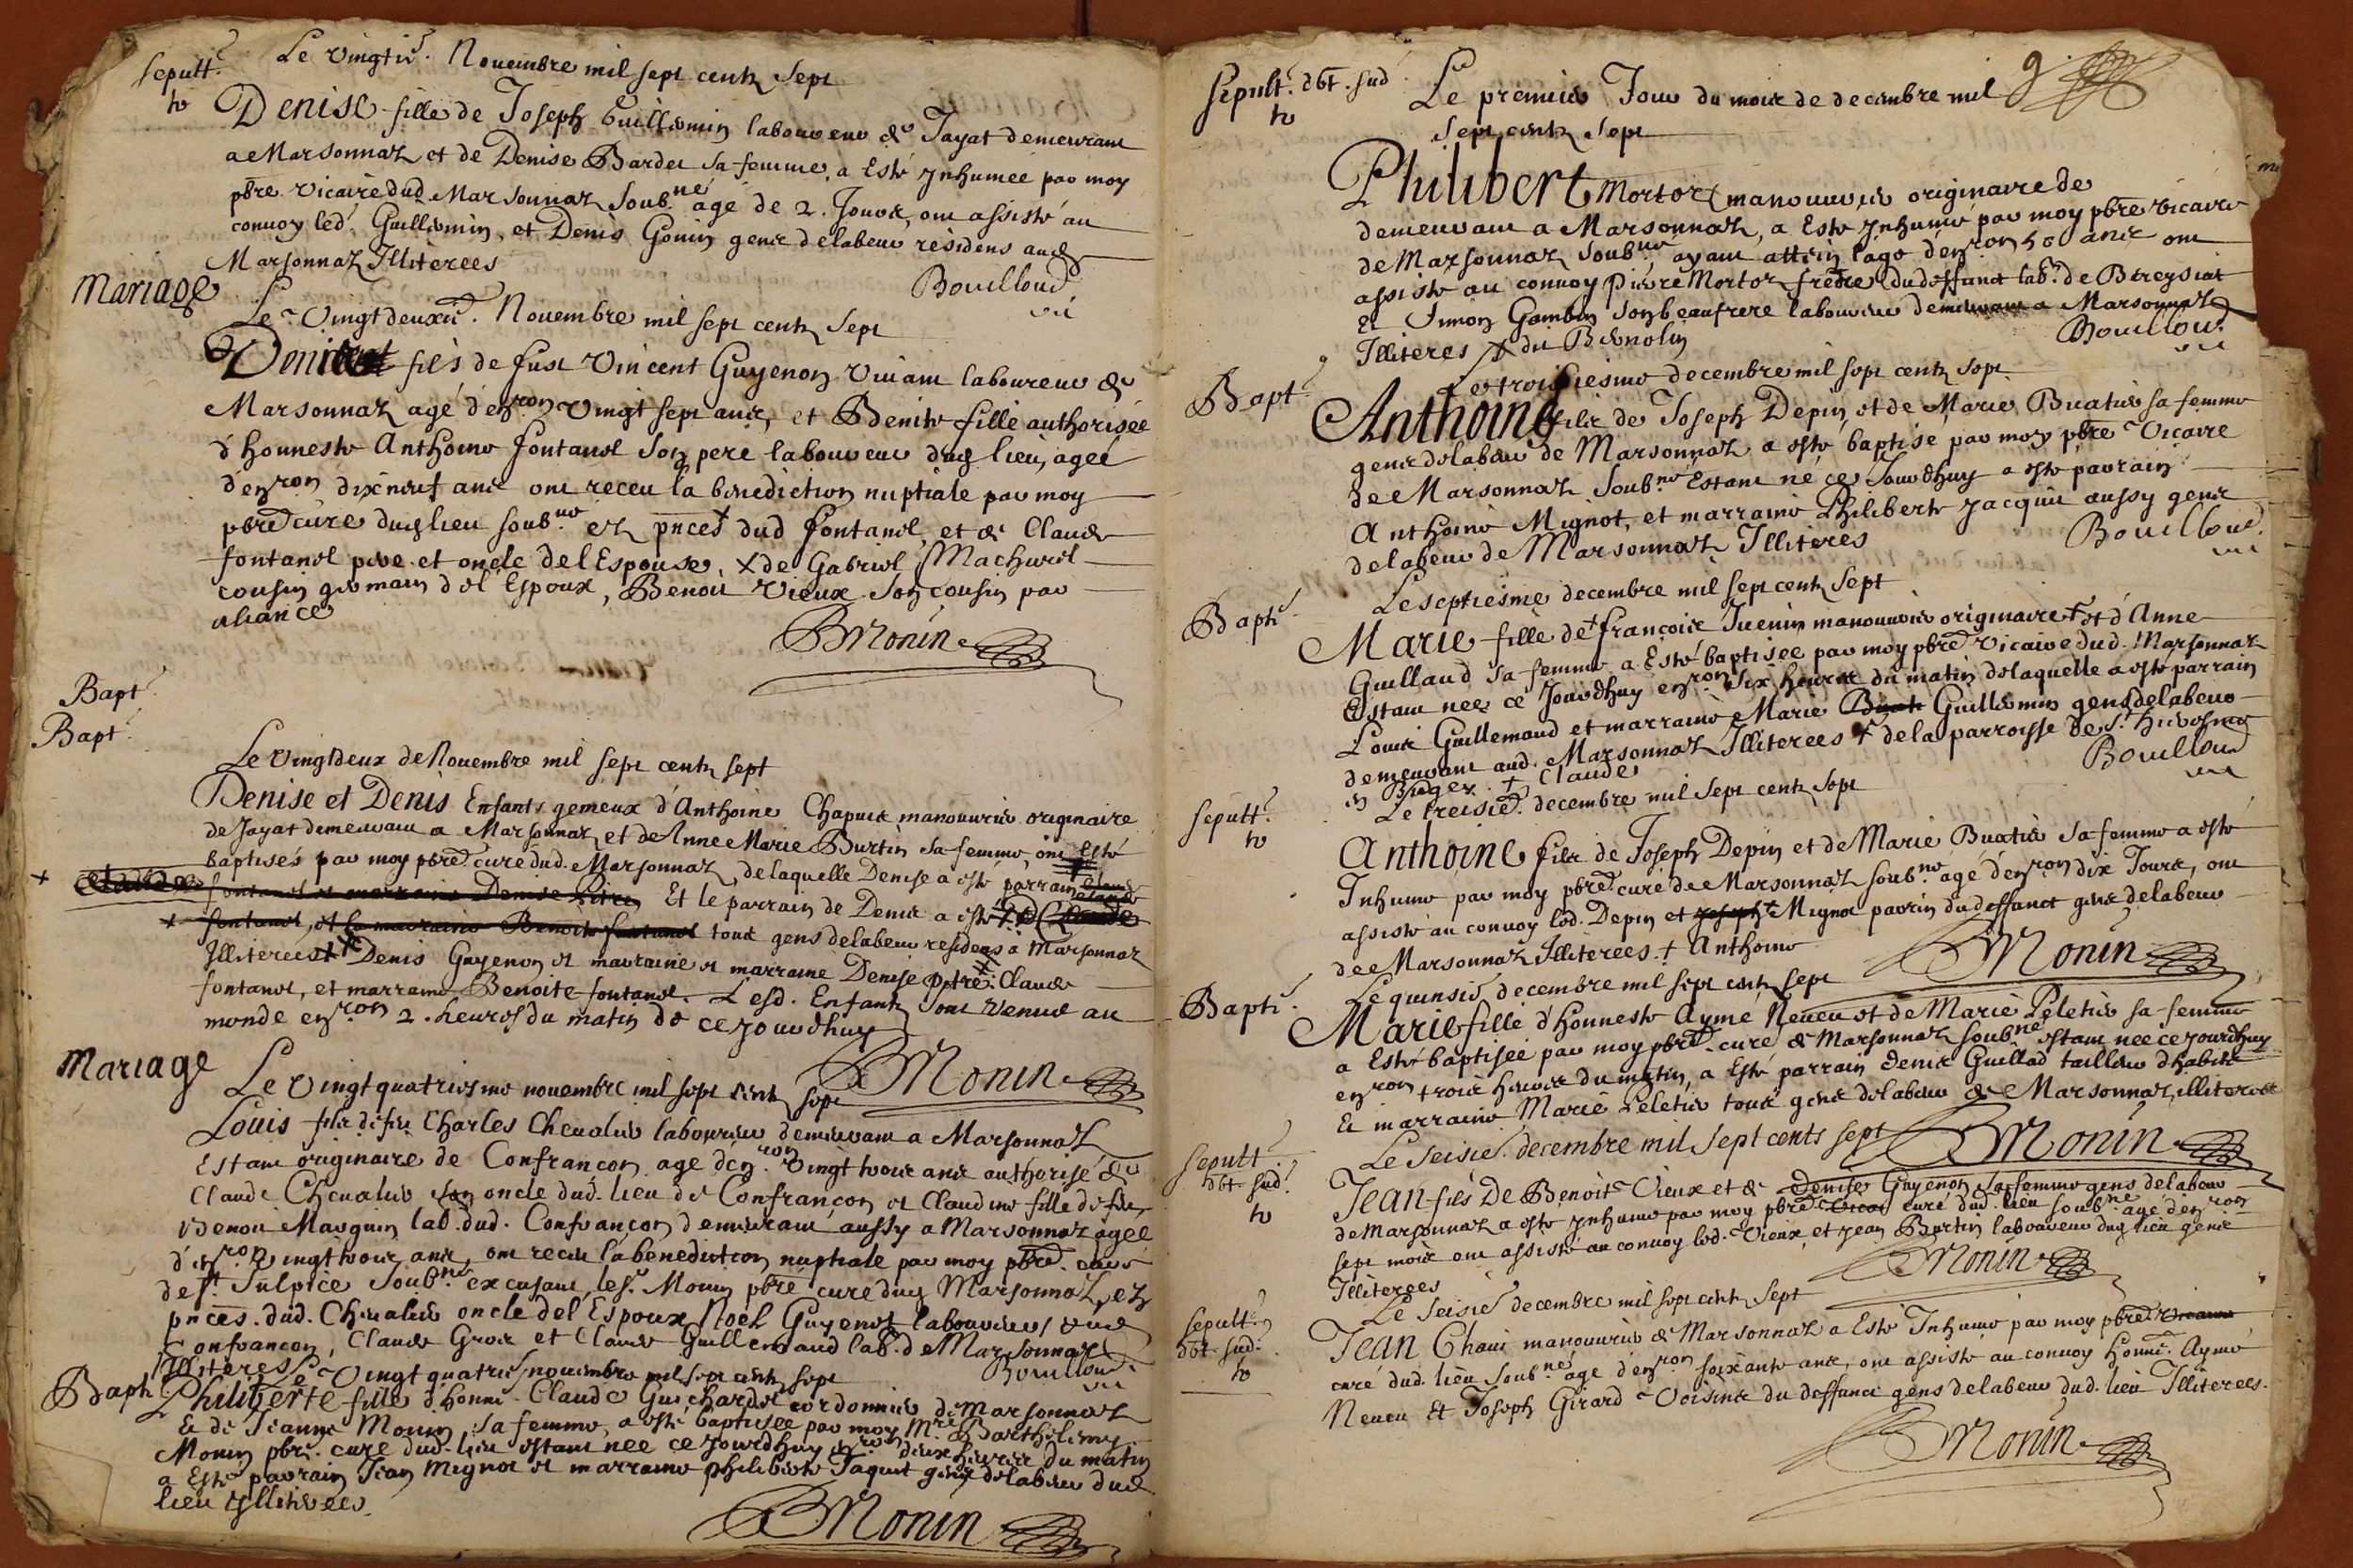 seputt.e Le vingtie. Nouembre mil sept centz sept
to Denise fille de Joseph Guillermin laboureur de Jayat demeurant
a Marsonnaz et de Denise Bardet sa femme, a Esté Jnhumée par moy
pbre vicaire dud. Marsonnaz soub.né agé de 2. Jours, ont assisté au
conuoy led. Guillermin, et Denis Gonin gens de labeur residens aud.
Marsonnaz Illiterees
Bouilloud
vic
Mariage Le Vingtdeuxie. Nouembre mil sept centz sept
fils de fust Vincent Guyenon viuant laboureur de
Marsonnaz agé d'enron vingt sept ans, et Benite fille authorisée
d'honneste Anthoine fontanel son pere laboureur dud lieu, agee
d'enron dix neuf ans ont receu la benediction nuptiale par moy
pbre curé dud lieu soub.né ez pnces dud fontanel, et de Claude
fontanel pere et oncle de l'Espouse, x de Gabriel Machurel
cousin germain de l'Espoux, Benoit Vieux son cousin par
aliance
BMonin
Bapt.e
Bapt.e
Le vingtdeux de Nouembre mil sept centz sept
Denise et Denis Enfants gemeux d'Anthoine Chapuis manouurier originaire
de Jayat demeurant a Marsonnaz et de Anne Marie Burtin sa femme, ont Esté
baptisés par moy pbre curé dud. Marsonnaz, de laquelle Denise a esté parrain Claude
fontanel et marraine Denise Pitre Et le parrain de Denis a esté
fontanel, et la marraine Benoite fontanel tous gens de labeur residens a Marsonnaz
Illiterées x Denis Guyenon et marraine et marraine Denise pitre x Claude
fontanel, et marraine Benoite fontanel. Lesd. Enfants sont venus au
monde enron 2. heures du matin de ce jourdhuy
BMonin
Mariage Le Vingt quatriesme nouembre mil sept centz sept
Louis fils de feu Charles Cheualier laboureur demeurant a Marsonnaz
Estant originaire de Confrancon agé d'enron vingt trois ans authorisé de
Claude Cheualier son oncle dud. lieu de Confrançon et Claudine fille de feu
Benoit Mauguin lab. dud. Confrançon demeurant aussy a Marsonnaz agée
d'enron vingt trois ans, ont receu la benediction nuptiale par moy pbre curé
de St Sulpice soub.né excusant le sr Monin pbre curé dud Marsonnaz, ez
pnces. dud. Cheualier oncle de l'Espoux Noel Guyenot laboureur aud
Confrancon, Claude Gros et Claude Guillemaud lab. de Marsonnaz
Illiteres
Bouilloud
vic
Bapt Le Vingt quatrie. nouembre mil sept centz sept
Philiberte fille d'honne. Claude Guichardot cordonnier de Marsonnaz
Et de Jeanne Monin sa femme, a esté baptisée par moy Mre Barthelemy
Monin pbre. curé dud. lieu estant née ce jourdhuy enron deux heures du matin
a Esté parrain Jean Mignot et marraine philiberte Jaquet gens de labeur dud
lieu yllitereés.
BMonin
9.
Sepult.e dbt. sud Le premier Jour du mois de decembre mil
to sept centz sept
Philibert Mortoz manouurier originaire de
demeurant a Marsonnaz, a Esté Jnhumé par moy pbre vicaire
de Marsonnaz soub.né ayant attein l'age d'enron 50 ans ont
assisté au conuoy Pierre Mortoz frere du deffunct lab.r de Bereysiat
Et Simon Gambin son beaufrere laboureur demeurant a Marsonnaz
Illiteres x du Biolnolin
Bouilloud
vic
Bapt.e Le troisiesme decembre mil sept centz sept
Anthoine fils de Joseph Depin, et de Marie Buatier sa femme
gens de labeur de Marsonnaz a esté baptisé par moy pbre Vicaire
de Marsonnaz soub.né Estant né ce Jourdhuy a esté parrain
Anthoine Mignot, et marraine Philiberte Jacquet aussy gens
de labeur de Marsonnaz Illiteres
Bouilloud
vic
Bapt.e Le septiesme decembre mil sept centz sept
Marie fille de + françois Juenin manouurier originaire + et d'Anne
Guillaud sa femme a Esté baptisée par moy pbre vicaire dud. Marsonnaz
Estant née ce Jourdhuy enron six heures du matin de laquelle a esté parrain
Louis Guillemaud et marraine Marie Guillermin gens de labeur
demeurant aud. Marsonnaz Illiterees + de la parroisse de St hierosme
en Buges. + Claude
Bouilloud
vic
seputt.e Le treisie. decembre mil sept centz sept
to Anthoine fils de Joseph Depin et de Marie Buatier sa femme a esté
Jnhumé par moy pbre curé de Marsonnaz soub.né agé d'enron dix Jours, ont
assisté au conuoy led. Depin et Joseph + Mignot parrin du deffunct gens de labeur
de Marsonnaz Illiterees. + Anthoine
BMonin
Bapt.e Le quinsie decembre mil sept centz sept
Marie fille d'honneste Aymé Neueu et de Marie Peletier sa femme
a Esté baptisée par moy pbre. curé de Marsonnaz soub.né estant née ce jourdhuy
enron trois heures du matin, a Esté parrain denis Guillad tailleur dhabits
Et marraine Marie Peletier tous gens de labeur de Marsonnaz illiterees
BMonin
seputt.e Le Seisie. decembre mil sept cents sept
dbt sud. Jean fils De Benoit Vieux et de Denise Guyenon sa femme gens de labeur
to de Marsonnaz a esté ynhumé par moy pbre vicai curé dud. lieu soub.né agé d'enron
sept mois ont assisté au conuoy led. Vieux, et Jean Burtin laboureur dud lieu gens
Illiterees
BMonin
sepult.e Le Seisie decembre mil sept centz sept
dbt sud. Jean Chani manouurier de Marsonnaz a Esté Jnhumé par moy pbre vicaire
to curé dud. lieu soub.né agé d'enron soixante ans, ont assisté au conuoy honne. Aymé
Neueu Et Joseph Girard Voisins du deffunct gens de labeur dud. lieu Illiterees.
BMonin